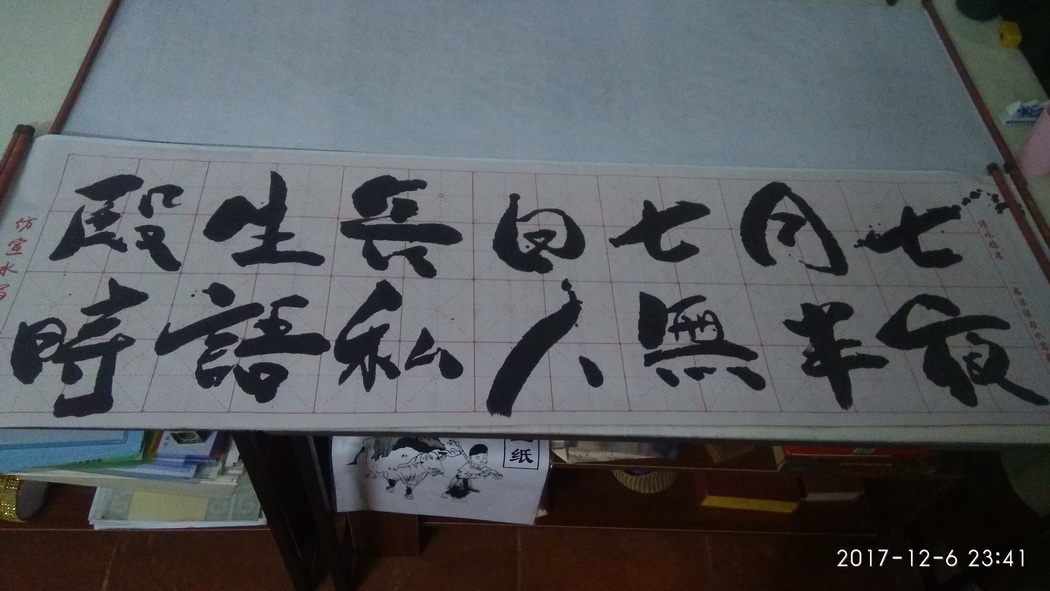 七月七日長生殿
夜半無人私語時
仿宣水
纸
2017-12-6 23:41